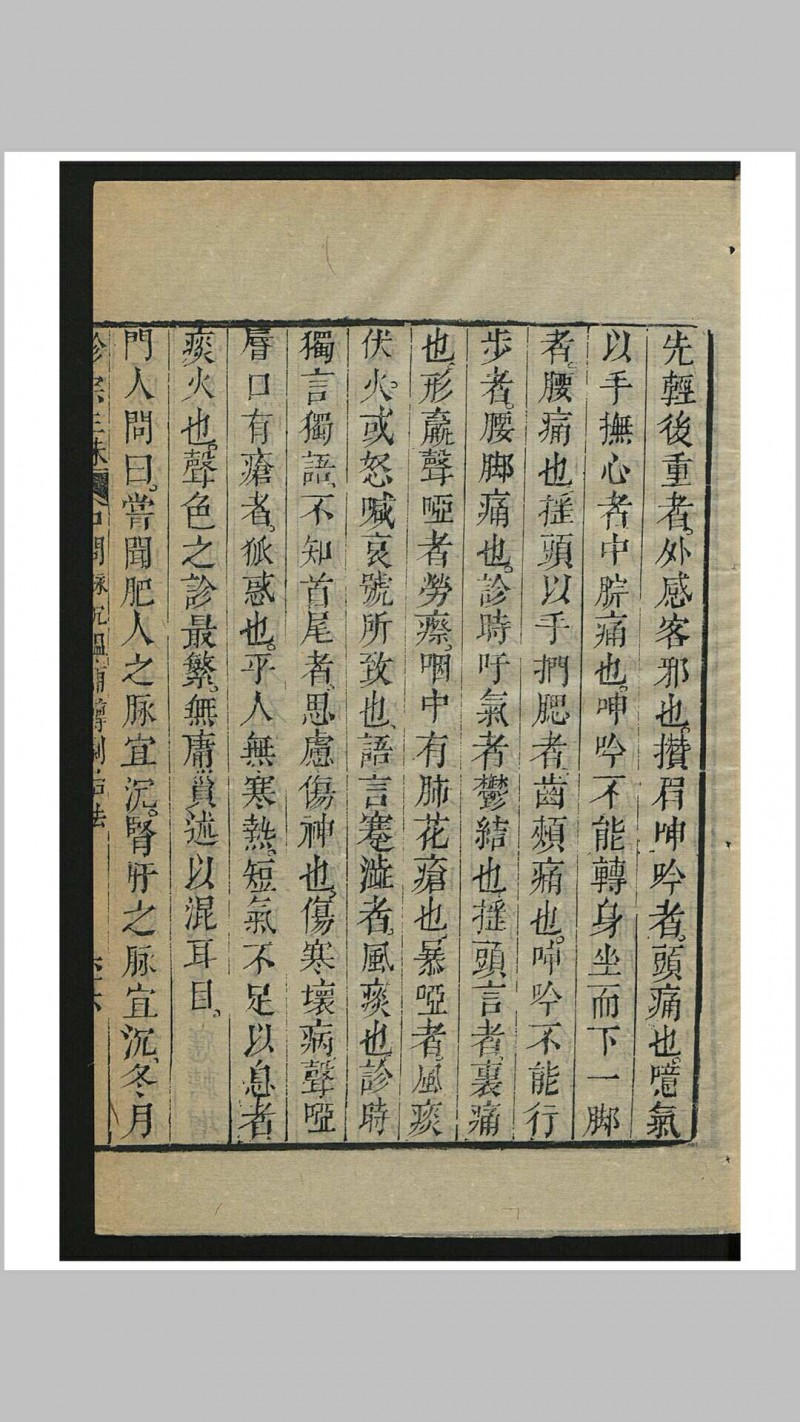 先輕後重者。外感客邪也。攅眉呻吟者。頭痛也。噫氣
以手撫心者中脘痛也。呻吟不能轉身坐而下一脚
者。腰痛也。揺頭以手捫腮者。齒頰痛也。呻吟不能行
步者。腰脚痛也。診時吁氣者鬱結也。揺頭言者。裏痛
也。形羸聲啞者勞瘵。咽中有肺花瘡也。暴啞者。風痰
伏火。或怒喊哀號所致也。語言蹇澁者。風痰也。診時
獨言獨語、不知首尾者。思慮傷神也。傷寒壞病聲啞
唇口有瘡者。狐惑也。平人無寒熱。短氣不足以息者
痰火也。聲色之診最繁。無庸贅述以混耳目。
門人問曰。嘗聞肥人之脉宜沉。腎肝之脉宜沉、冬月
診宗三昧